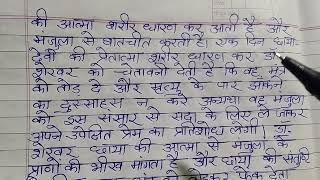 की आत्मा शरीर धारण कर आती है और
मंजुला से बातचीत करती है। एक दिन छाया-
देवी की प्रेतात्मा शरीर धारण कर डॉ॰
शेखर को चेतावनी देती है कि वह मंत्र
को तोड़ दे और मृत्यु के पार झाँकने
का दुस्साहस न करे अन्यथा वह मंजुला
को इस संसार से सदा के लिए ले जाकर
अपने उपेक्षित प्रेम का प्रतिशोध लेगी। डॉ॰
शेखर छाया की आत्मा से मंजुला के
प्राणों की भीख मांगता है और छाया की संतुष्टि
तोड़कर फेंक देता